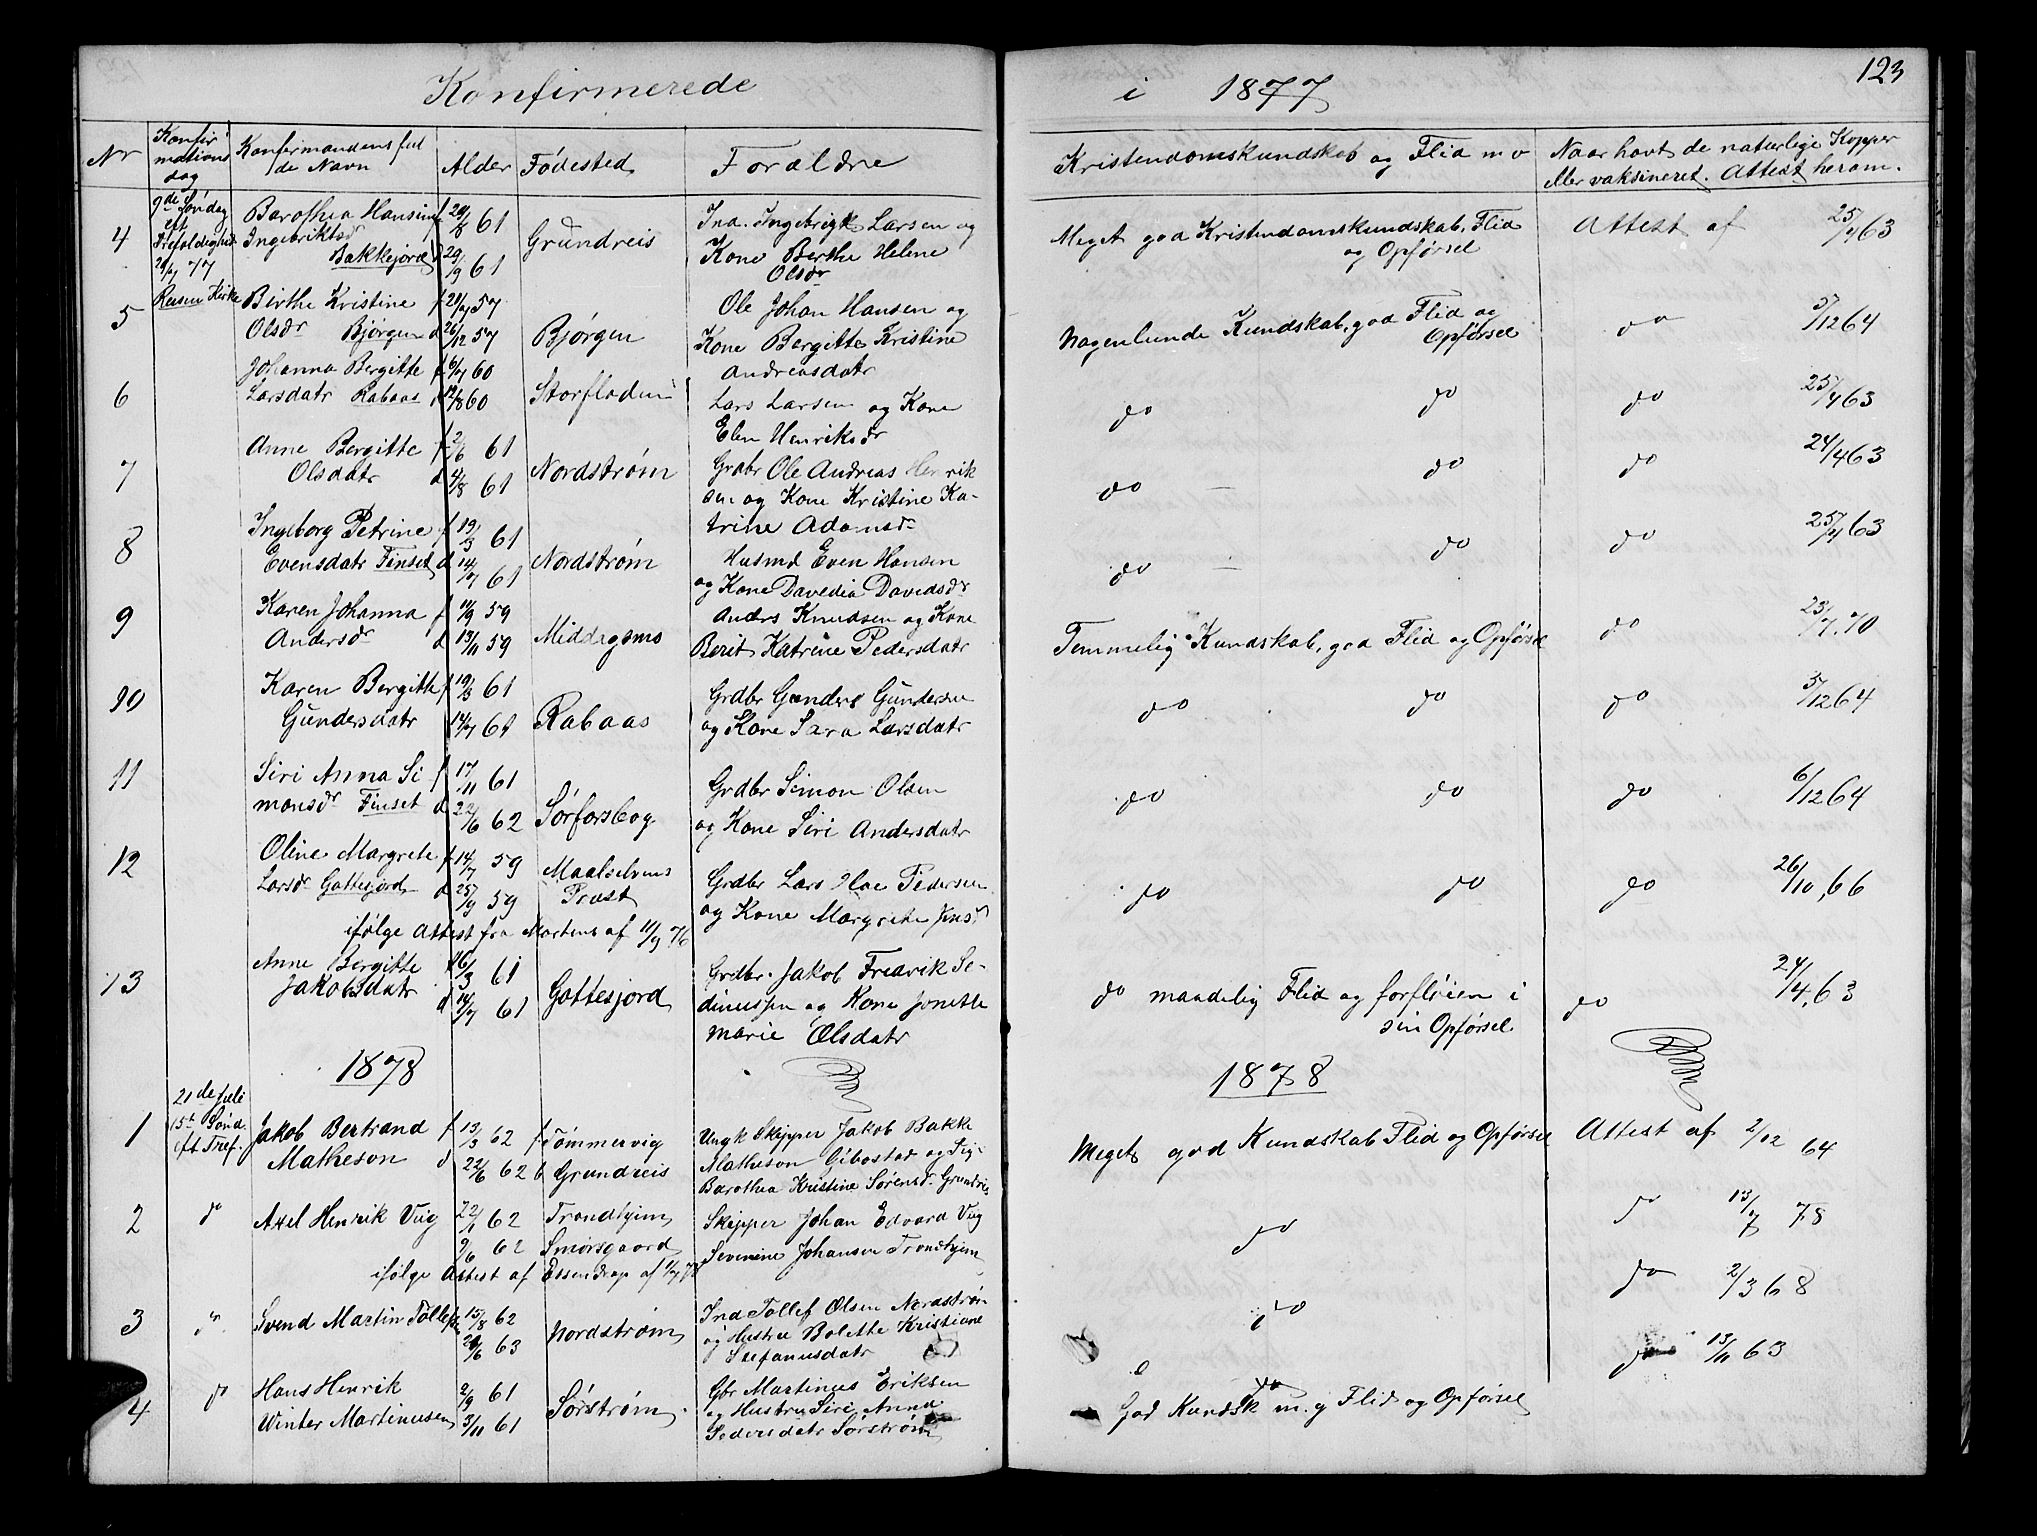 123
Konfirmerede i 1877
Nr Konfirmations dag Konfirmandens fulde Navn Alder Fødested Forældre Kristendomskundskab og Flid m v Naar havt de naturlige Kopper eller vaksineret. Attest herom.
9de Søndag eft Trefoldighed 29/7 77 Reisen Kirke
4 Barothea Hansine f 20/8 61 Grundreis Ind. Ingebrigt Larsen og Meget god Kristendomskundskab, Flid Attest af 25/4 63
Ingebriktsdr Bakkejord d 29/9 61 Kone Berthe Helene og Opførsel
Olsdr
5 Birthe Kristine f 57 Bjørgen Ole Johan Hansen og Nogenlunde Kundskab, god Flid og do 5/12 64
Olsdr Bjørgen d 26/12 57 Kone Bergitte Kristine Opførsel
Andreasdatr
6 Johanna Bergitte f 6/7 60 Storfloden Lars Larsen og Kone do do do 25/4 63
Larsdatr Rabaas d 12/8 60 Elen Henriksdr
7 Anne Bergitte f 2/6 61 Nordstrøm Grdbr Ole Andreas Henrik do do do 24/4 63
Olsdatr d 4/8 61 sen og Kone Kristine Ka-
trine Adamsdr
8 Ingeborg Petrine f 19/3 61 Nordstrøm Husmd Even Hansen do do do 25/4 63
Evensdatr Finset d 14/7 61 og Kone Davedia Davidsdr
9 Karen Johanna f 11/9 59 Middagsmo Anders Knudsen og Kone Temmelig Kundskab, god Flid og Opførsel do 23/7. 70
Andersdr d 13/11 59 Berit Katrine Pedersdatr
10 Karen Bergitte f 19/3 61 Rabaas Grdbr Gunder Gundersen do do do 5/12 64
Gundersdatr 14/7 61 og Kone Sara Larsdatr
11 Siri Anna Si f 17/11 61 Sørforsbog Grdbr Simon Olsen do do do 6/12 64
monsdr Finset d 22/6 62 og Kone Siri Andersdatr
12 Oline Margrete f 14/7 59 Maalselvens Grdbr Lars Pedersen do do do 26/10, 66
Larsdr Gottesjord d 25/9 59 Præst og Kone Margrete
ifølge Attest fra Martens af 11/9 76
13 Anne Bergitte f 6/3 61 Gottesjord Grdbr. Jakob Fredrik Se- do maadelig Flid og i do 24/4, 63
Jakobsdatr d 14/7 61 dinussen og Kone Jonette sin Opførsel
Marie Olsdatr
1878 1878
21de Juli 15t Sønd. eft Tref.
1 Jakob Bertrand f 13/3 62 f Tømmervig Ungk Skipper Jakob Bakke Meget god Kundskab Flid og Opførsel Attest af 2/12 64
Matheson d 22/6 62 b Grundreis Matheson Gibostad og Pige
Barothea Kristine Sørensdr Grundreis
2 do Axel Henrik Vug 22/1 62 Trondhjem Skipper Johan Edvard Vug do do 13/7 78
9/6 62 Smørsgaard Severine Johansen Trondhjem
ifølge Attest af Essendrop af 1/7 78
3 do Svend Martin Tollefsen 15/8 62 Nordstrøm Ind Tollef Olsen Nordstrøm do do 2/3 68
29/6 63 og Hustru Bolette Kristiane
Stefanusdatr
4 do Hans Henrik 2/9 61 Sørstrøm Gbr Martinus Eriksen do do 13/11 63
Winter Martinusen 3/11 61 og Hustru Siri Anna God Kundsk m. g Flid og Opførsel
Pedersdatr Sørstrøm